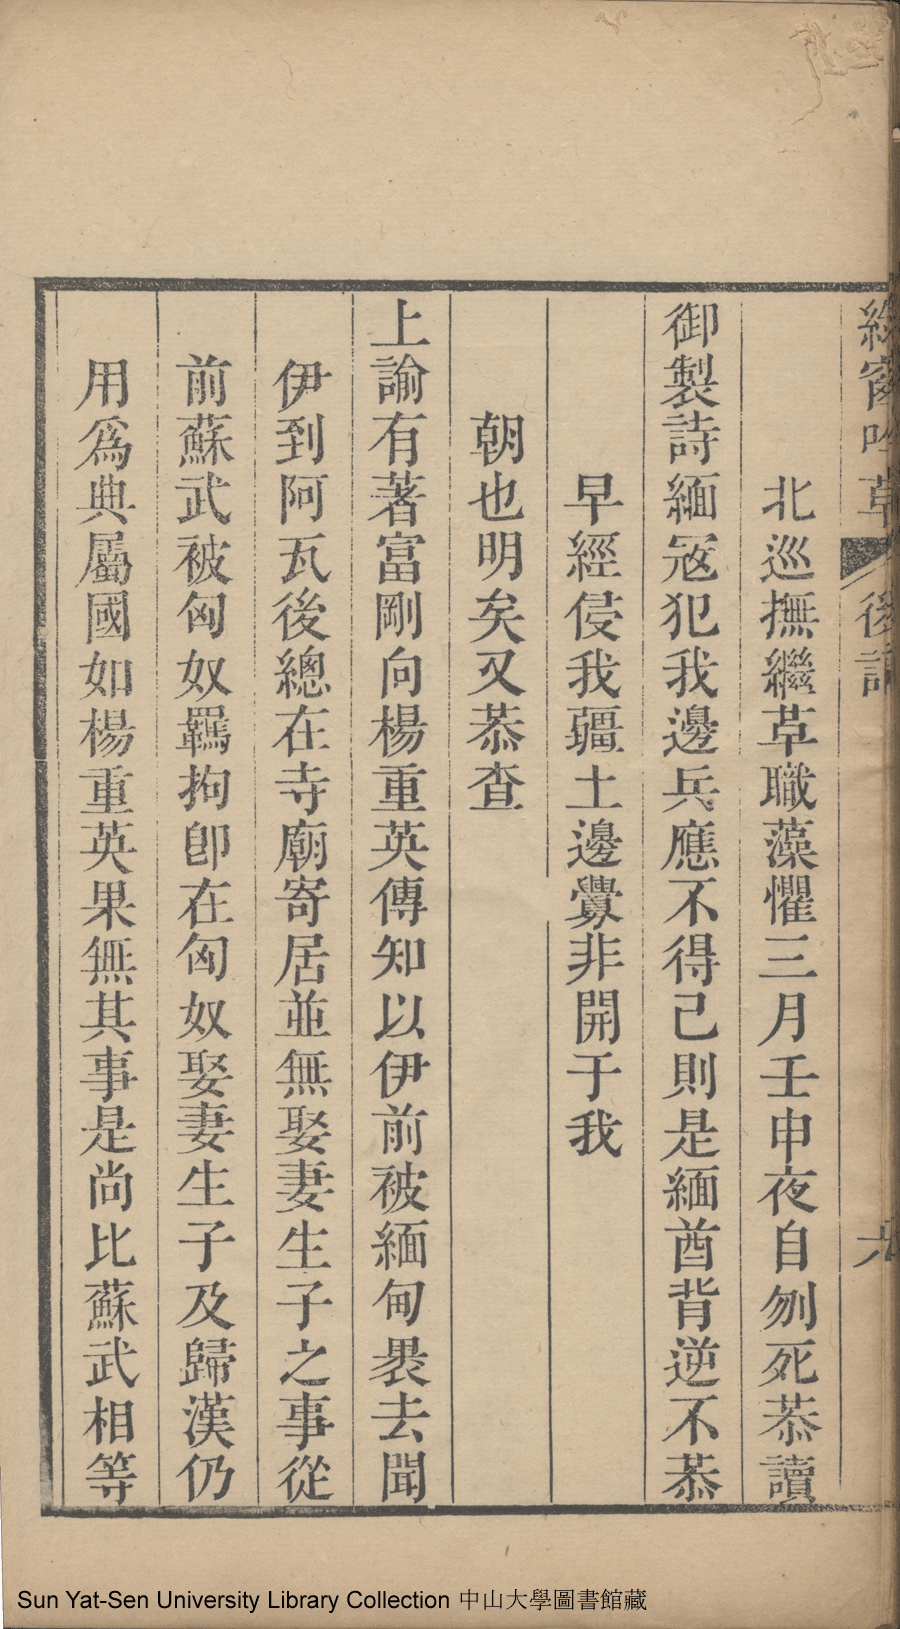 綠窗吟草 後記 六
北巡撫繼草職藻懼三月壬申夜自刎死恭讀
御製詩緬宼犯我邊兵應不得己則是緬酋背逆不恭
早經侵我疆土邊釁非開于我
朝也明矣又恭查
上諭有著富剛向楊重英傳知以伊前被緬甸褁去聞
伊到阿瓦後總在寺廟寄居並無娶妻生子之事從
前蘇武被匈奴羈拘卽在匈奴娶妻生子及歸漢仍
用爲典屬國如楊重英果無其事是尚比蘇武相等
Sun Yat-Sen University Library Collection 中山大學圖書館藏